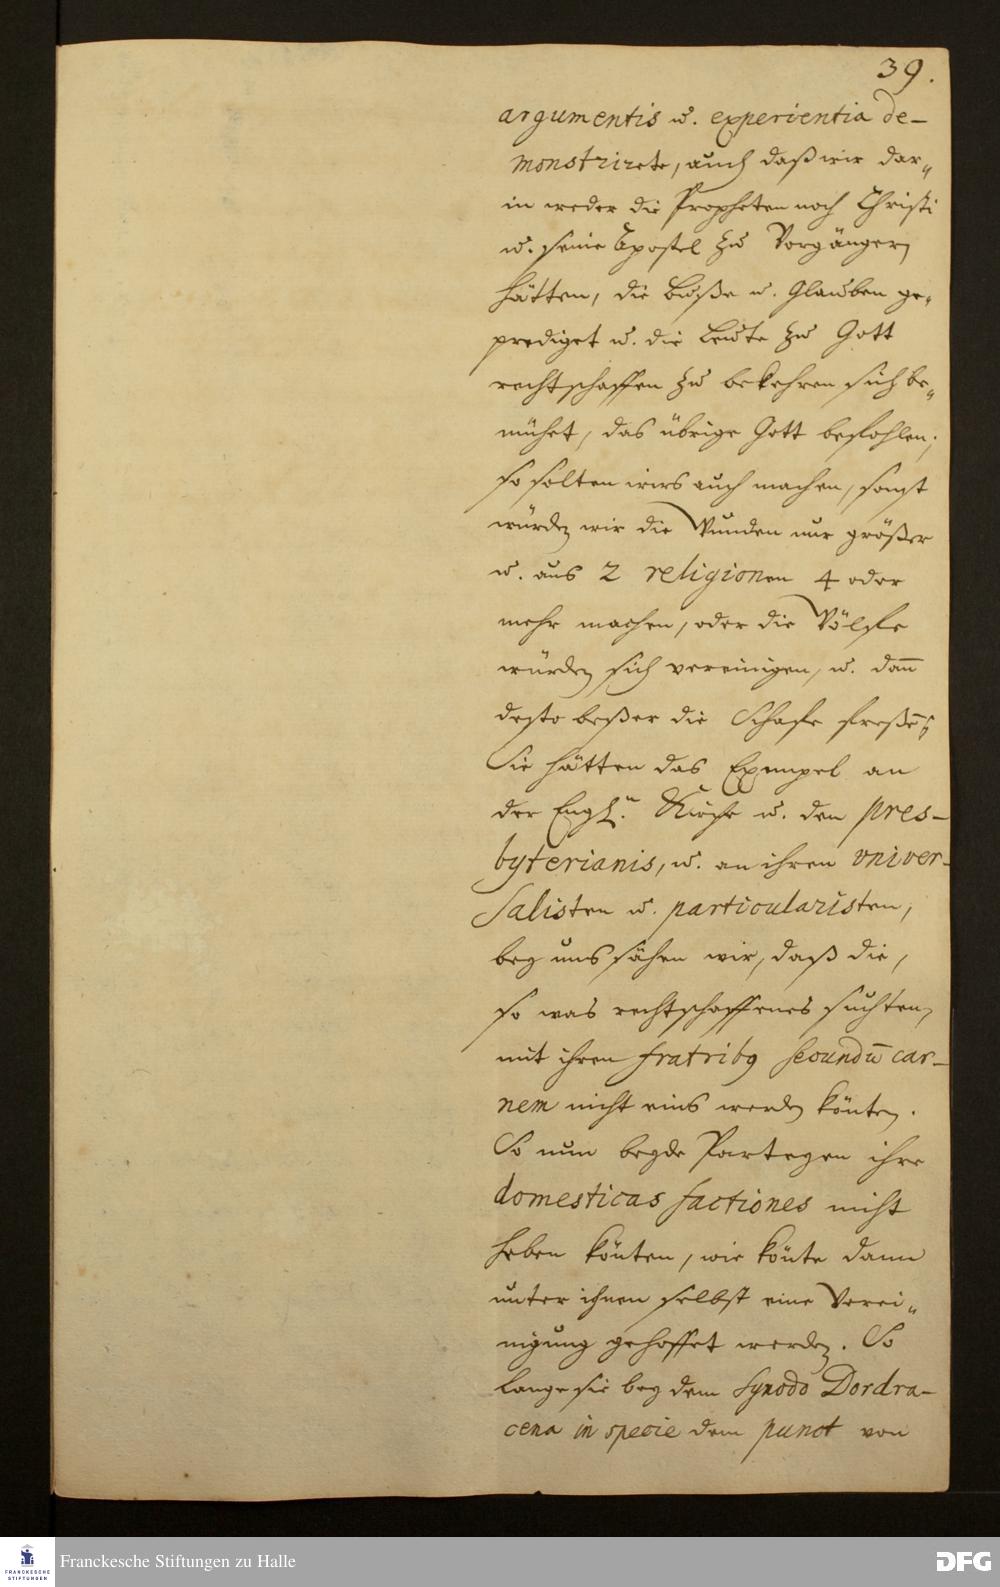 39.
argumentis u. experientia de-
monstrirete, auch daß wir dar„
in weder die Propheten noch Christi
u. seine Apostel zu Vorgängern
hätten, die Buße u. Glauben ge„
prediget u. die Leute zu Gott
rechtschaffen zu bekehren sich be„
mühet, das übrige Gott befohlen;
so solten wirs auch machen, sonst
würden wir die Wunden nur größer
u. aus 2 religionen 4 oder
mehr machen, oder die Wölffe
würden sich vereinigen, u. dann
desto beßer die Schafe freßen;
Sie hätten das Exempel an
der Engl.n Kirche u. den pres-
byterianis, u. an ihren vniver-
salisten u. particularisten,
bey uns sähen wir, daß die,
so was rechtschaffenes suchten,
mit ihren fratribg secundū car-
nem nicht eins werden könten.
So nun beyde Parteyen ihre
domesticas factiones nicht
heben könten, wie könte dann
unter ihnen selbst eine Verei„
nigung gehoffet werden. So
lange sie bey dem Synodo Dordra-
cena in specie dem punct von
Franckesche Stiftungen zu Halle
FRANCKESCHE
STIFTUNGEN
DFG